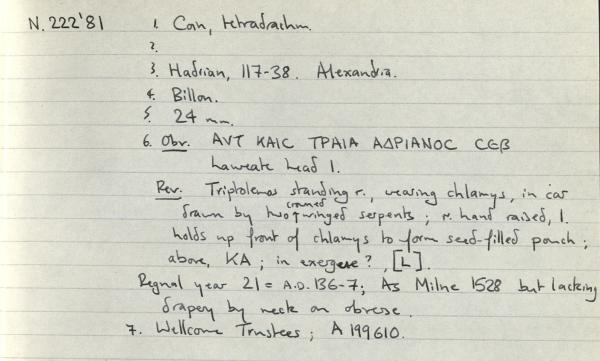 N. 222'81 1. Coin, tetradrachm.
2.
3. Hadrian, 117-38. Alexandria.
4. Billon.
5. 24 mm.
6. Obv. ΑVΤ ΚΑΙC ΤΡΑΙΑ ΑΔΡΙΑΝΟC CЄΒ
Laureate head l.
Rev. Triptolemos standing r., wearing chlamys, in car
drawn by two crowned winged serpents; r. hand raised, l.
holds up front of chlamys to form seed-filled pouch;
above, KA; in exergue?, [L].
Regnal year 21 = A.D. 136-7; As Milne 1528 but lacking
drapery by neck on obverse.
7. Wellcome Trustees; A 199610.